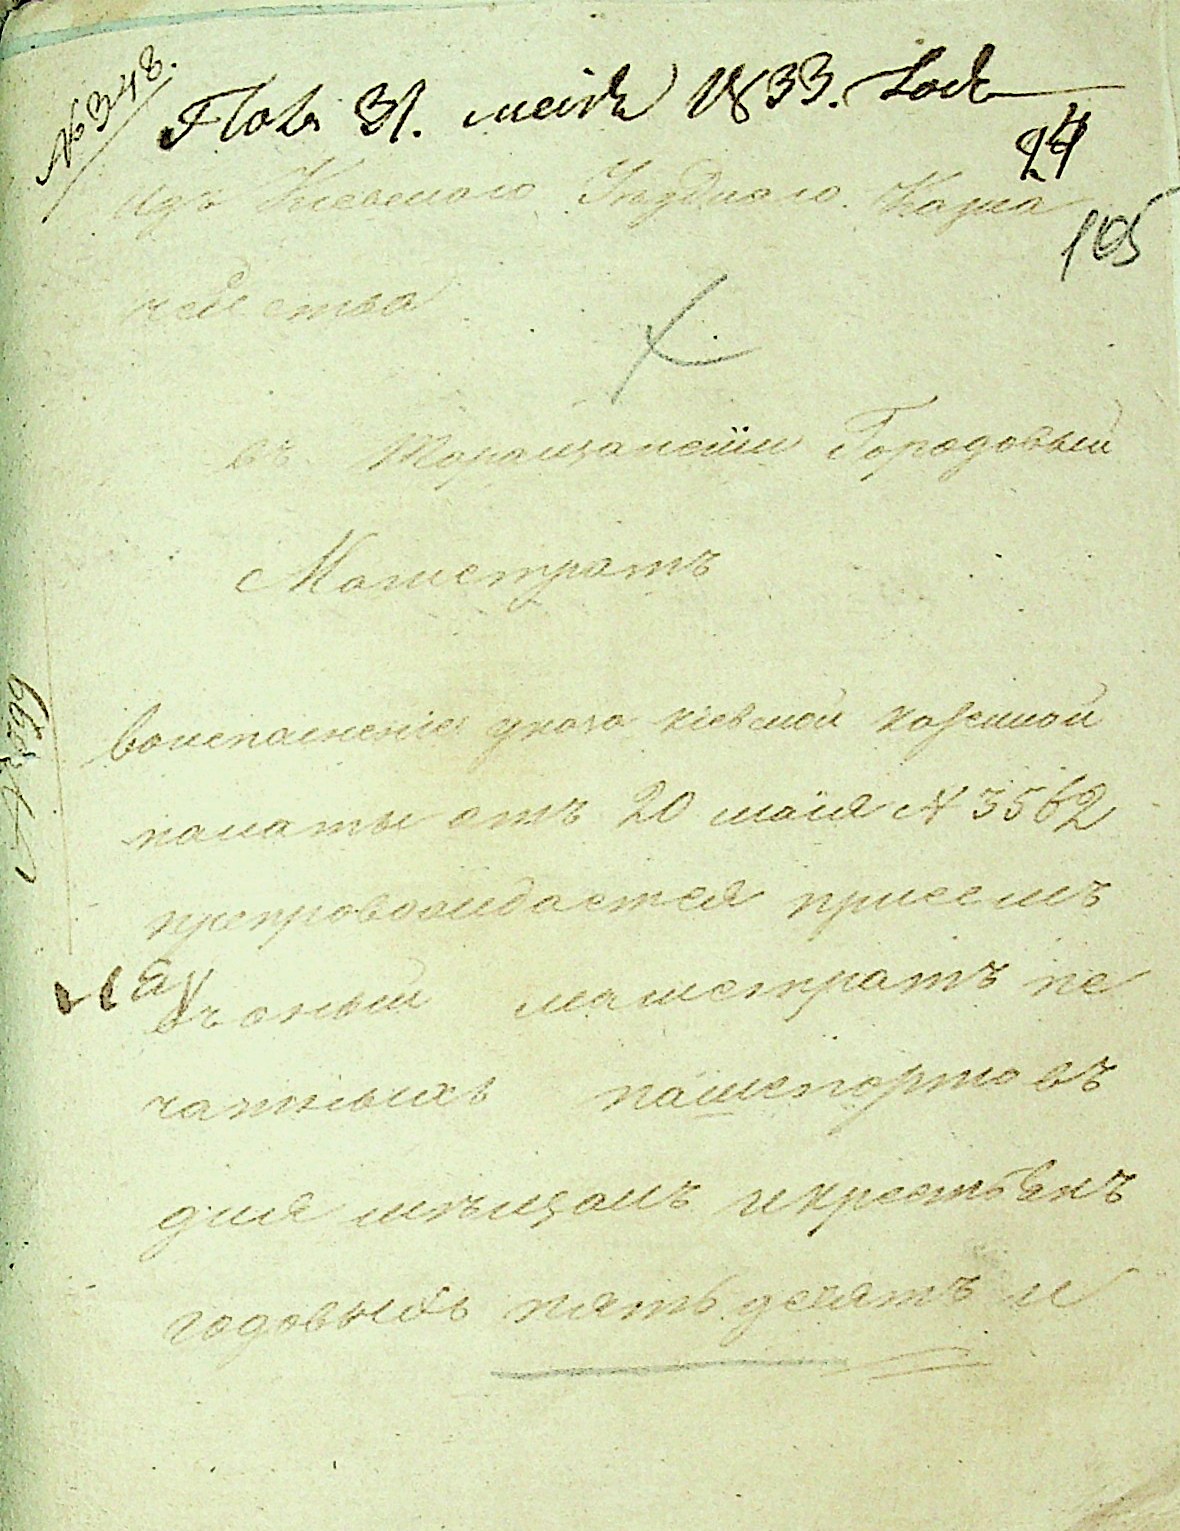 № 348.
Пол. 31. маія 1833. года
24
Изъ Кіевскаго Уѣзднаго Казна
105
чейства
въ Таращанскій Городовый
Магистратъ
Воисполненіе указа кіевской казенной
палаты отъ 20 маія № 3562
препровождается присемъ
въ оный магистратъ пе
чатныхъ пашпортовъ
для мѣщанъ и крестьянъ
годовыхъ пять десятъ и